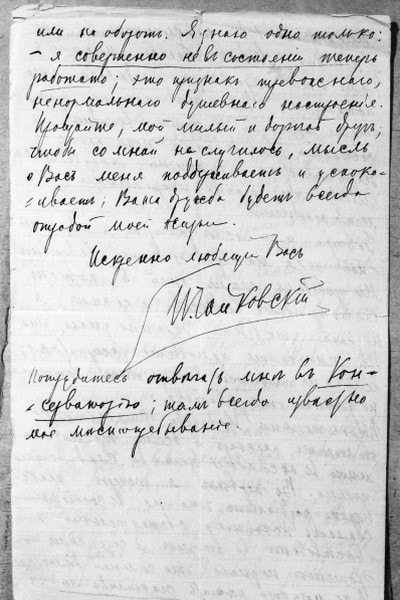 или на оборотъ. Я знаю одно только:
– я совершенно не въ состояніи теперь
работать; это признакъ тревожнаго,
ненормальнаго душевнаго настроенія.
Прощайте, мой милый и дорогой другъ,
чтобы со мной ни случилось, мысль
о Васъ меня поддерживаетъ и успоко-
-иваетъ; Ваша дружба будетъ всегда
отрадой моей жизни.
Искренно любящій Васъ
П. Чайковскій
Потрудитесь отвѣчать мнѣ въ Кон-
-серваторію; тамъ всегда извѣстно
мое мѣстопребываніе.